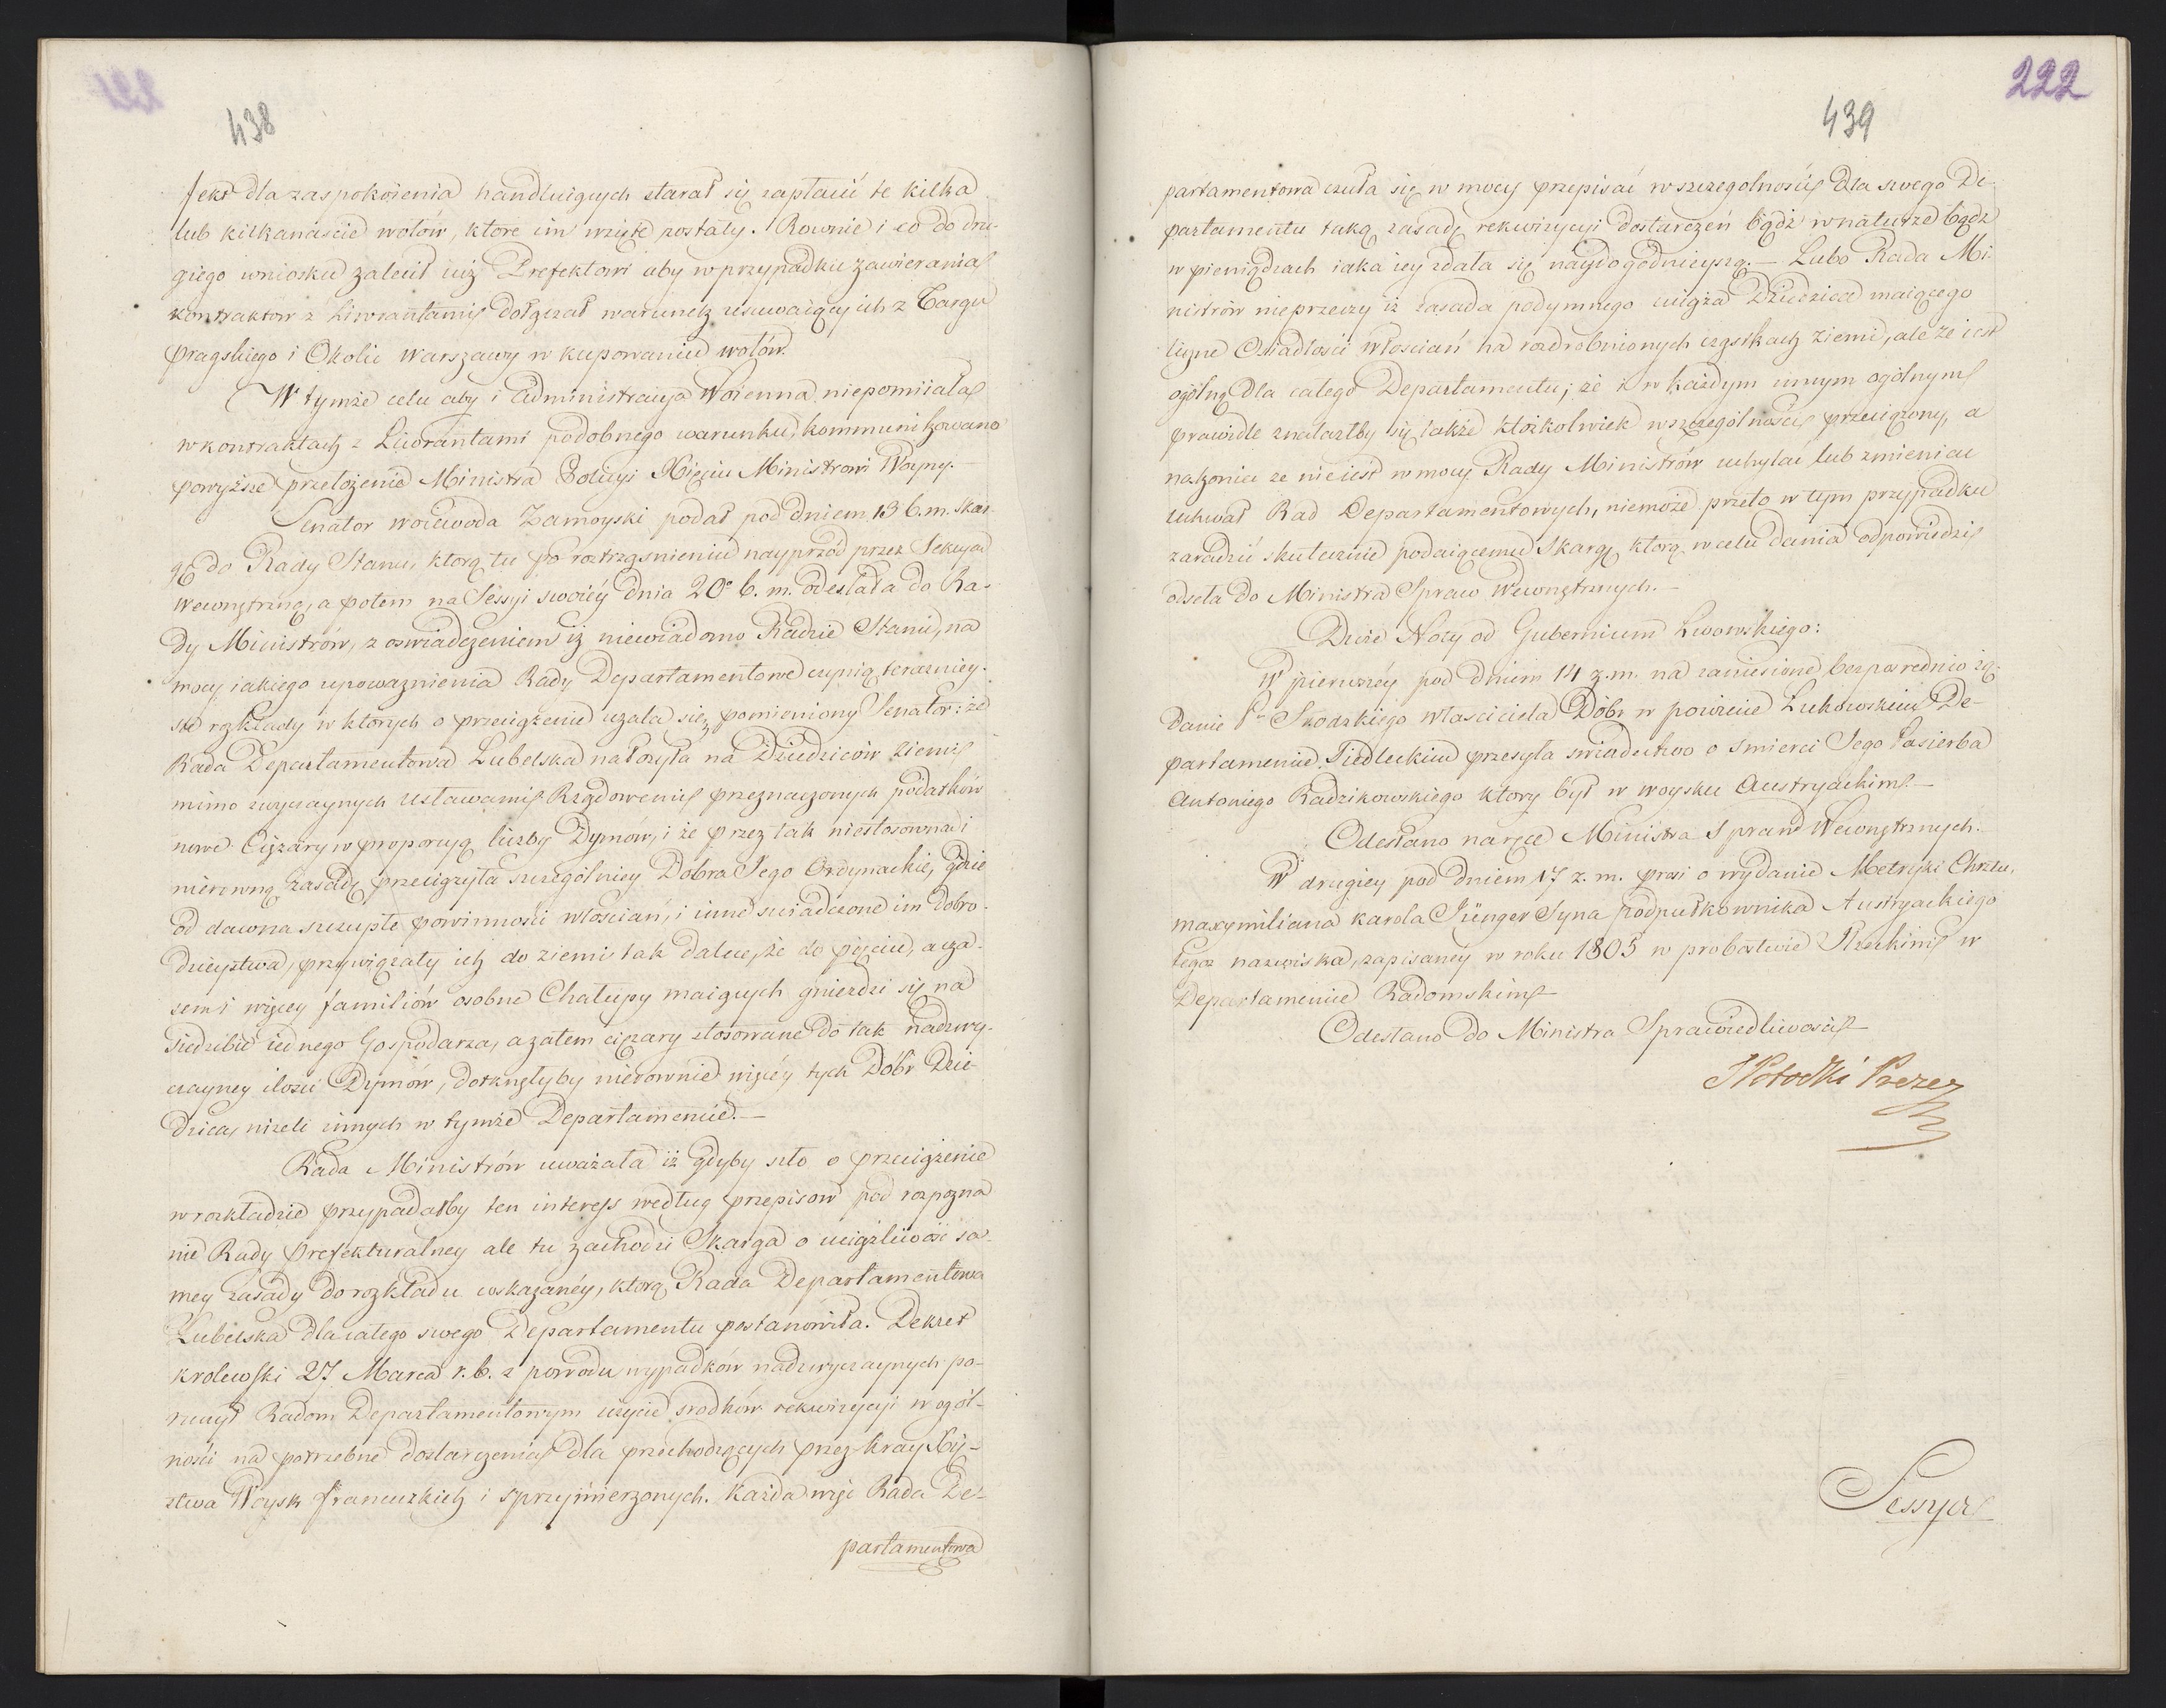 438
fekt dla zaspokoienia handluiących starał się zapłacić te kilka
lub kilkanaście wołów, ktore im wzięte zostały. Rownie i co do dru-
giego wniosku zalecił iuż Prefektowi aby w przypadku zawierania
kontraktow z Liwrantami dołączał warunek usuwaiący ich z Targu
Pragskiego i Okolic Warszawy w kupowaniu wołów.
W tymże celu aby i Administracya Woienna niepomiiała
w kontraktach z Liwrantami podobnego warunku, kommunikowano
powyższe przełożenie Ministra Policyi Xięciu Ministrowi Woyny.—
Senator woiewoda Zamoyski podał pod dniem 13 b. m. skar-
gę do Rady Stanu, ktorą tu po roztrząsnieniu nayprzód przez Sekcyą
Wewnętrzną, a potem na Sessyi swoiéy dnia 20° b. m. odesłała do Ra-
dy Ministrów, z oswiadczeniem iż niewiadomo Radzie Stanu, na
mocy iakiego upoważnienia Rady Departamentowe czynią terazniey-
sze rozkłady w ktorych o przeciążenie użala się pomieniony Senator: że
Rada Departamentowa Lubelska nałożyła na Dziedziców ziemi
mimo zwyczaynych ustawami Rządowemi przeznaczonych podatków
nowe Ciężary w proporcyą liczby Dymów, i że przez tak niestosowną i
nierowną zasadę przeciążyła szczególniey Dobra Jego Ordynackie, gdzie
od dawna szczupłe powinności włościan, i inne swiadczone im dobro-
dzieystwa, przywiązały ich do ziemi tak dalece, że do pięciu, a cza-
sem i więcey familiów osobne Chałupy maiących gnieździ się na
siedzibie iednego Gospodarza, a zatem ciężary stosowane do tak nadzwy-
czayney ilości Dymów, dotknęłyby nierownie więcéy tych Dóbr Dzie-
dzica, niżeli innych w tymże Departamencie.—
Rada Ministrów uważała iż gdyby szło o przeciążenie
w rozkładzie przypadałby ten interess według przepisow pod rozpozna
nie Rady Prefekturalney ale tu zachodzi Skarga o uciążliwość sa-
mey zasady do rozkładu wskazanéy, ktorą Rada Departamentowa
Lubelska dla całego swego Departamentu postanowiła. Dekret
krolewski 27 Marca r. b. z powodu wypadków nadzwyczaynych po-
ruczył Radom Departamentowym użycie srodków rekwizycyi w ogól-
ności na potrzebne dostarczenia dla przechodzących przez kray Xię-
ztwa Woysk francuzkich i sprzymierzonych. Każda więc Rada De-
partamentowa
222
439
partamentowa czuła się w mocy przepisać w szczegolności dla swego De-
partamentu taką zasadę rekwizycyi dostarczeń bądź w naturze bądz
w pieniądzach iaka iey zdała się naydogodnieyszą.— Lubo Rada Mi-
nistrów nieprzeczy iż zasada podymnego uciąża Dziedzica maiącego
liczne Osiadłości włościan na rozdrobnionych cząstkach ziemi, ale że iest
ogólną dla całego Departamentu; że i w każdym innym ogólnym
prawidle znalazłby się także ktożkolwiek w szczególności przeciążony, a
nakoniec że nie iest w mocy Rady Ministrów uchylać lub zmieniać
uchwał Rad Departamentowych, niemoże przeto w tym przypadku
zaradzić skutecznie podaiącemu skargę, ktorą w celu dania odpowiedzi
odseła do Ministra Spraw Wewnętrznych.—
Dwie Noty od Gubernium Lwowskiego:
W pierwszéy pod dniem 14 z. m. na zaniesione bezposrednio żą-
danie Pa Skodzkiego właściciela Dóbr w powiecie Łukowskim De-
partamencie Siedleckim przesyła swiadectwo o śmierci Jego Pasierba
Antoniego Radzikowskiego ktory był w woysku Austryackim.—
Odesłano na ręce Ministra Spraw Wewnętrznych.
W drugiey pod dniem 17 z. m. prosi o wydanie Metryki Chrztu,
maxymiliana karola Jünger Syna podpułkownika Austryackiego
tegoż nazwiska, zapisaney w roku 1805 w probostwie w
Departamencie Radomskim—
Odesłano do Ministra Sprawiedliwości—
SPotocki Prezes
Sessya